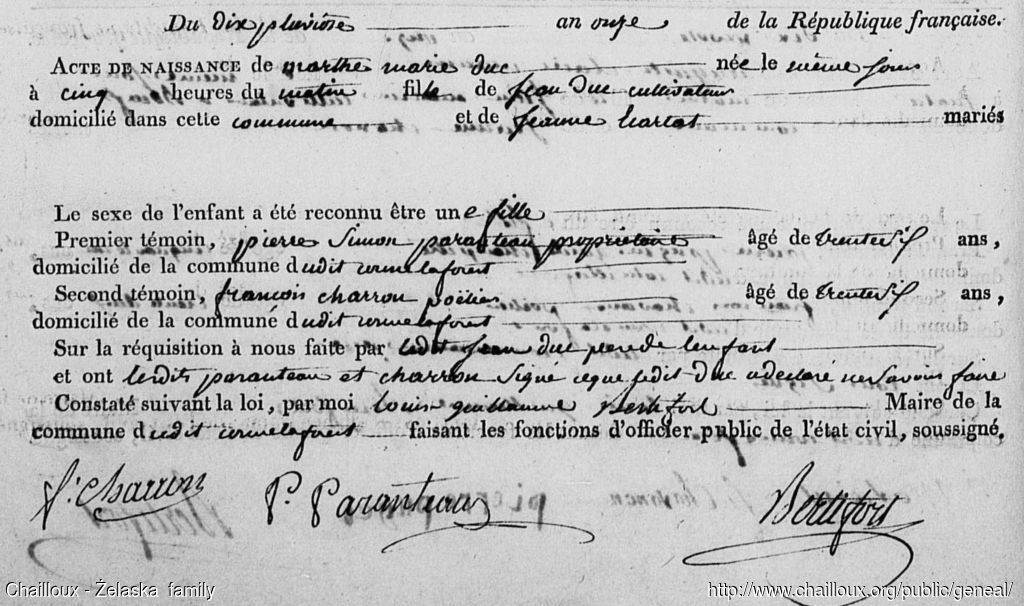 Du dix pluviôse an onze de la République française.
ACTE DE NAISSANCE de marthe marie duc née le même jour
à cinq heures du matin fille de jean duc cultivateur
domicilié dans cette commune et de jeanne mariés
Le sexe de l'enfant a été reconnu être une fille
Premier témoin, pierre Simon paranteau propriétaire âgé de trente six ans,
domicilié de la commune dudit ormelaforest
Second témoin, francois charron poëlier âgé de trente six ans,
domicilié de la commune dudit ormelaforest
Sur la réquisition à nous faite par ledit jean duc pere de lenfant
et ont lesdits paranteau et charron signé ce que ledit duc a declaré ne savoir faire
Constaté suivant la loi, par moi louis guillaume Maire de la
commune dudit ormelaforest faisant les fonctions d'officier public de l'état civil, soussigné.
f. charron P. Paranteau
Chailloux - Żelaska family http://www.chailloux.org/public/geneal/